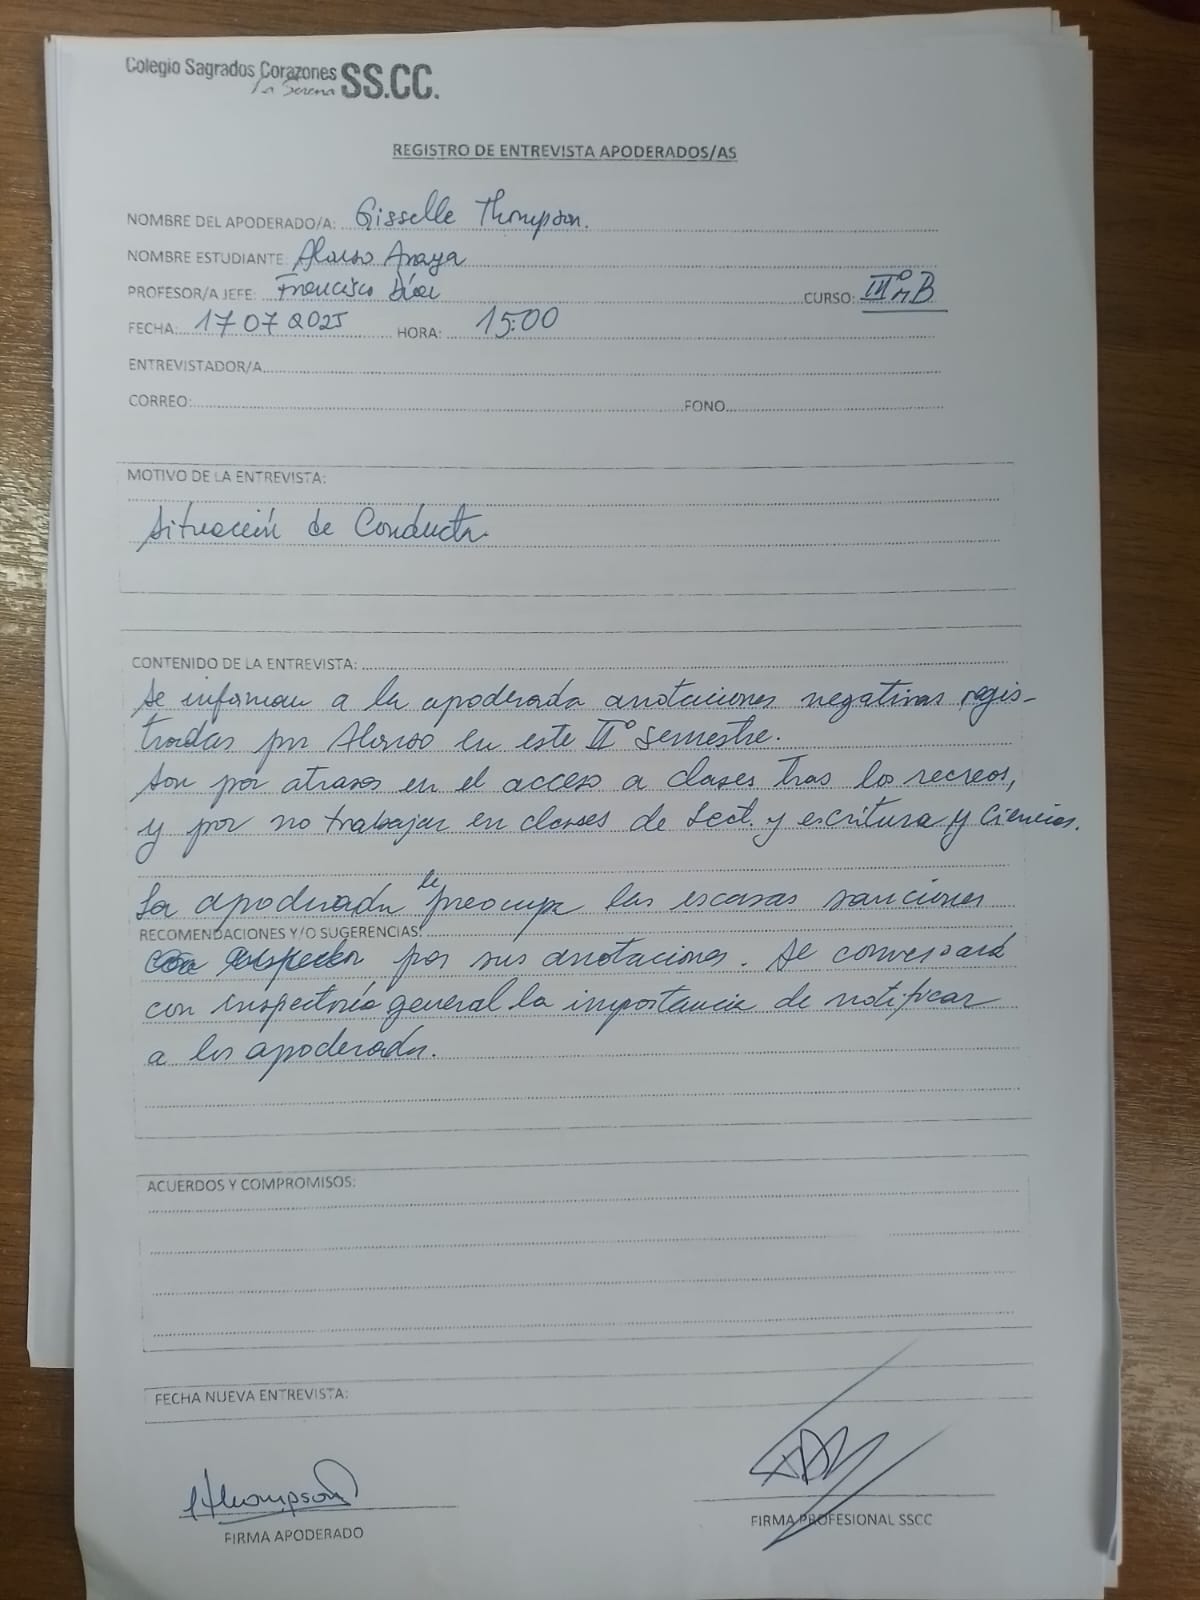 Colegio Sagrados Corazones
La Serena SS.CC.
REGISTRO DE ENTREVISTA APODERADOS/AS
NOMBRE DEL APODERADO/A: Gisselle Thompson.
NOMBRE ESTUDIANTE: Alonso Araya
PROFESOR/A JEFE: Francisco Díaz CURSO: IIIº M B
FECHA: 17 07 2025 HORA: 15:00
ENTREVISTADOR/A
CORREO: FONO
MOTIVO DE LA ENTREVISTA:
Situación de Conducta.
CONTENIDO DE LA ENTREVISTA:
Se informan a la apoderada anotaciones negativas regis-
tradas por Alonso en este IIº Semestre.
Son por atrasos en el acceso a clases tras los recreos,
y por no trabajar en clases de Lect. y escritura y Ciencias.
La apoderada le preocupa las escasas sanciones
RECOMENDACIONES Y/O SUGERENCIAS:
por sus anotaciones. Se conversará
con inspectoría general la importancia de notificar
a los apoderados.
ACUERDOS Y COMPROMISOS:
FECHA NUEVA ENTREVISTA:
Thompson
FIRMA APODERADO
FIRMA PROFESIONAL SSCC